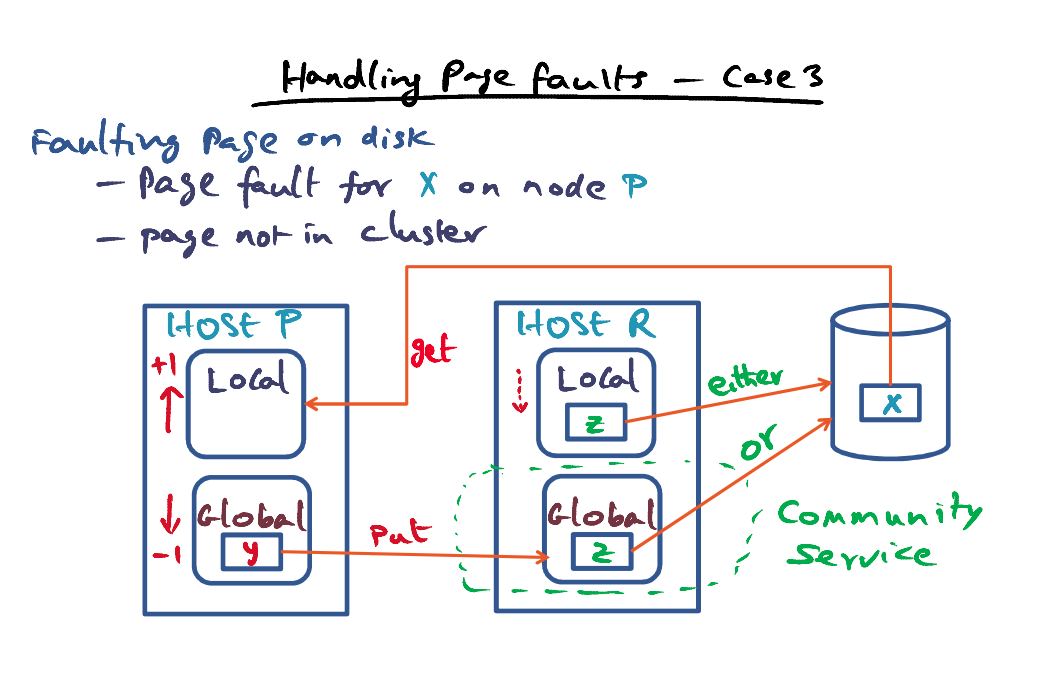 Handling Page faults — Case 3
Faulting Page on disk
— Page fault for X on node P
— page not in cluster
HOST P
HOST R
+1
Local
get
Local
z
either
X
or
-1
Global
y
put
Global
z
Community
Service